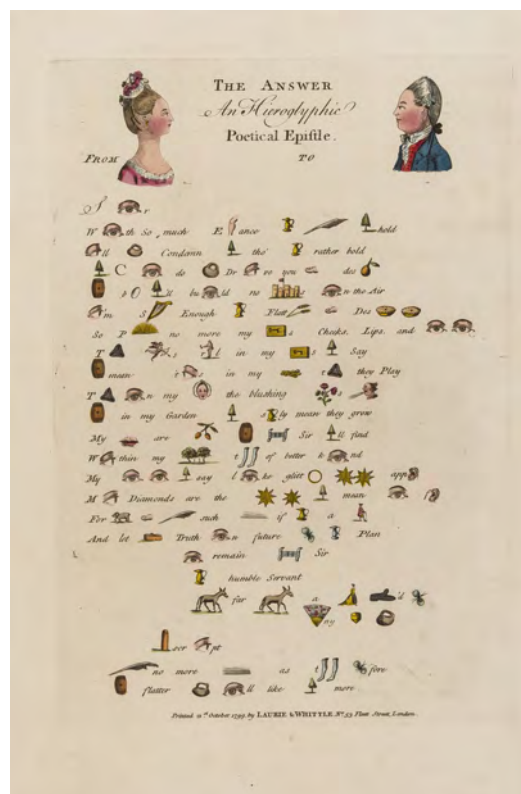 THE ANSWER
An Hieroglyphic
Poetical Epistle.
FROM TO
S r
W th So much E ance hold
ll Condemn tho' rather bold
C do Dr ro you des
s O ll bu ld no s n the Air
m S Enough Flatt Des
So P no more my s Cheeks. Lips. and
T s in my s Say
mean t s in my t they Play
T n my the blushing s
in my Garden s ly mean they grow
My are Sir ll find
W thin my t of better k nd
My say l ke glitt app
M Diamonds are the mean
For such if a
And let Truth n future Plan
remain Sir
humble Servant
far a 'd
ny
scr pt
no more as t fore
flatter ll like more
Printed 12th October 1799, by LAURIE & WHITTLE, No. 53 Fleet Street, London.